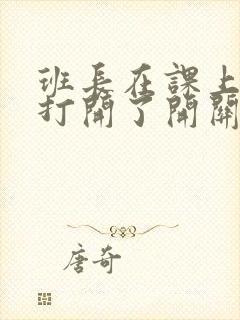 班長在課上
打開了開關
唐奇